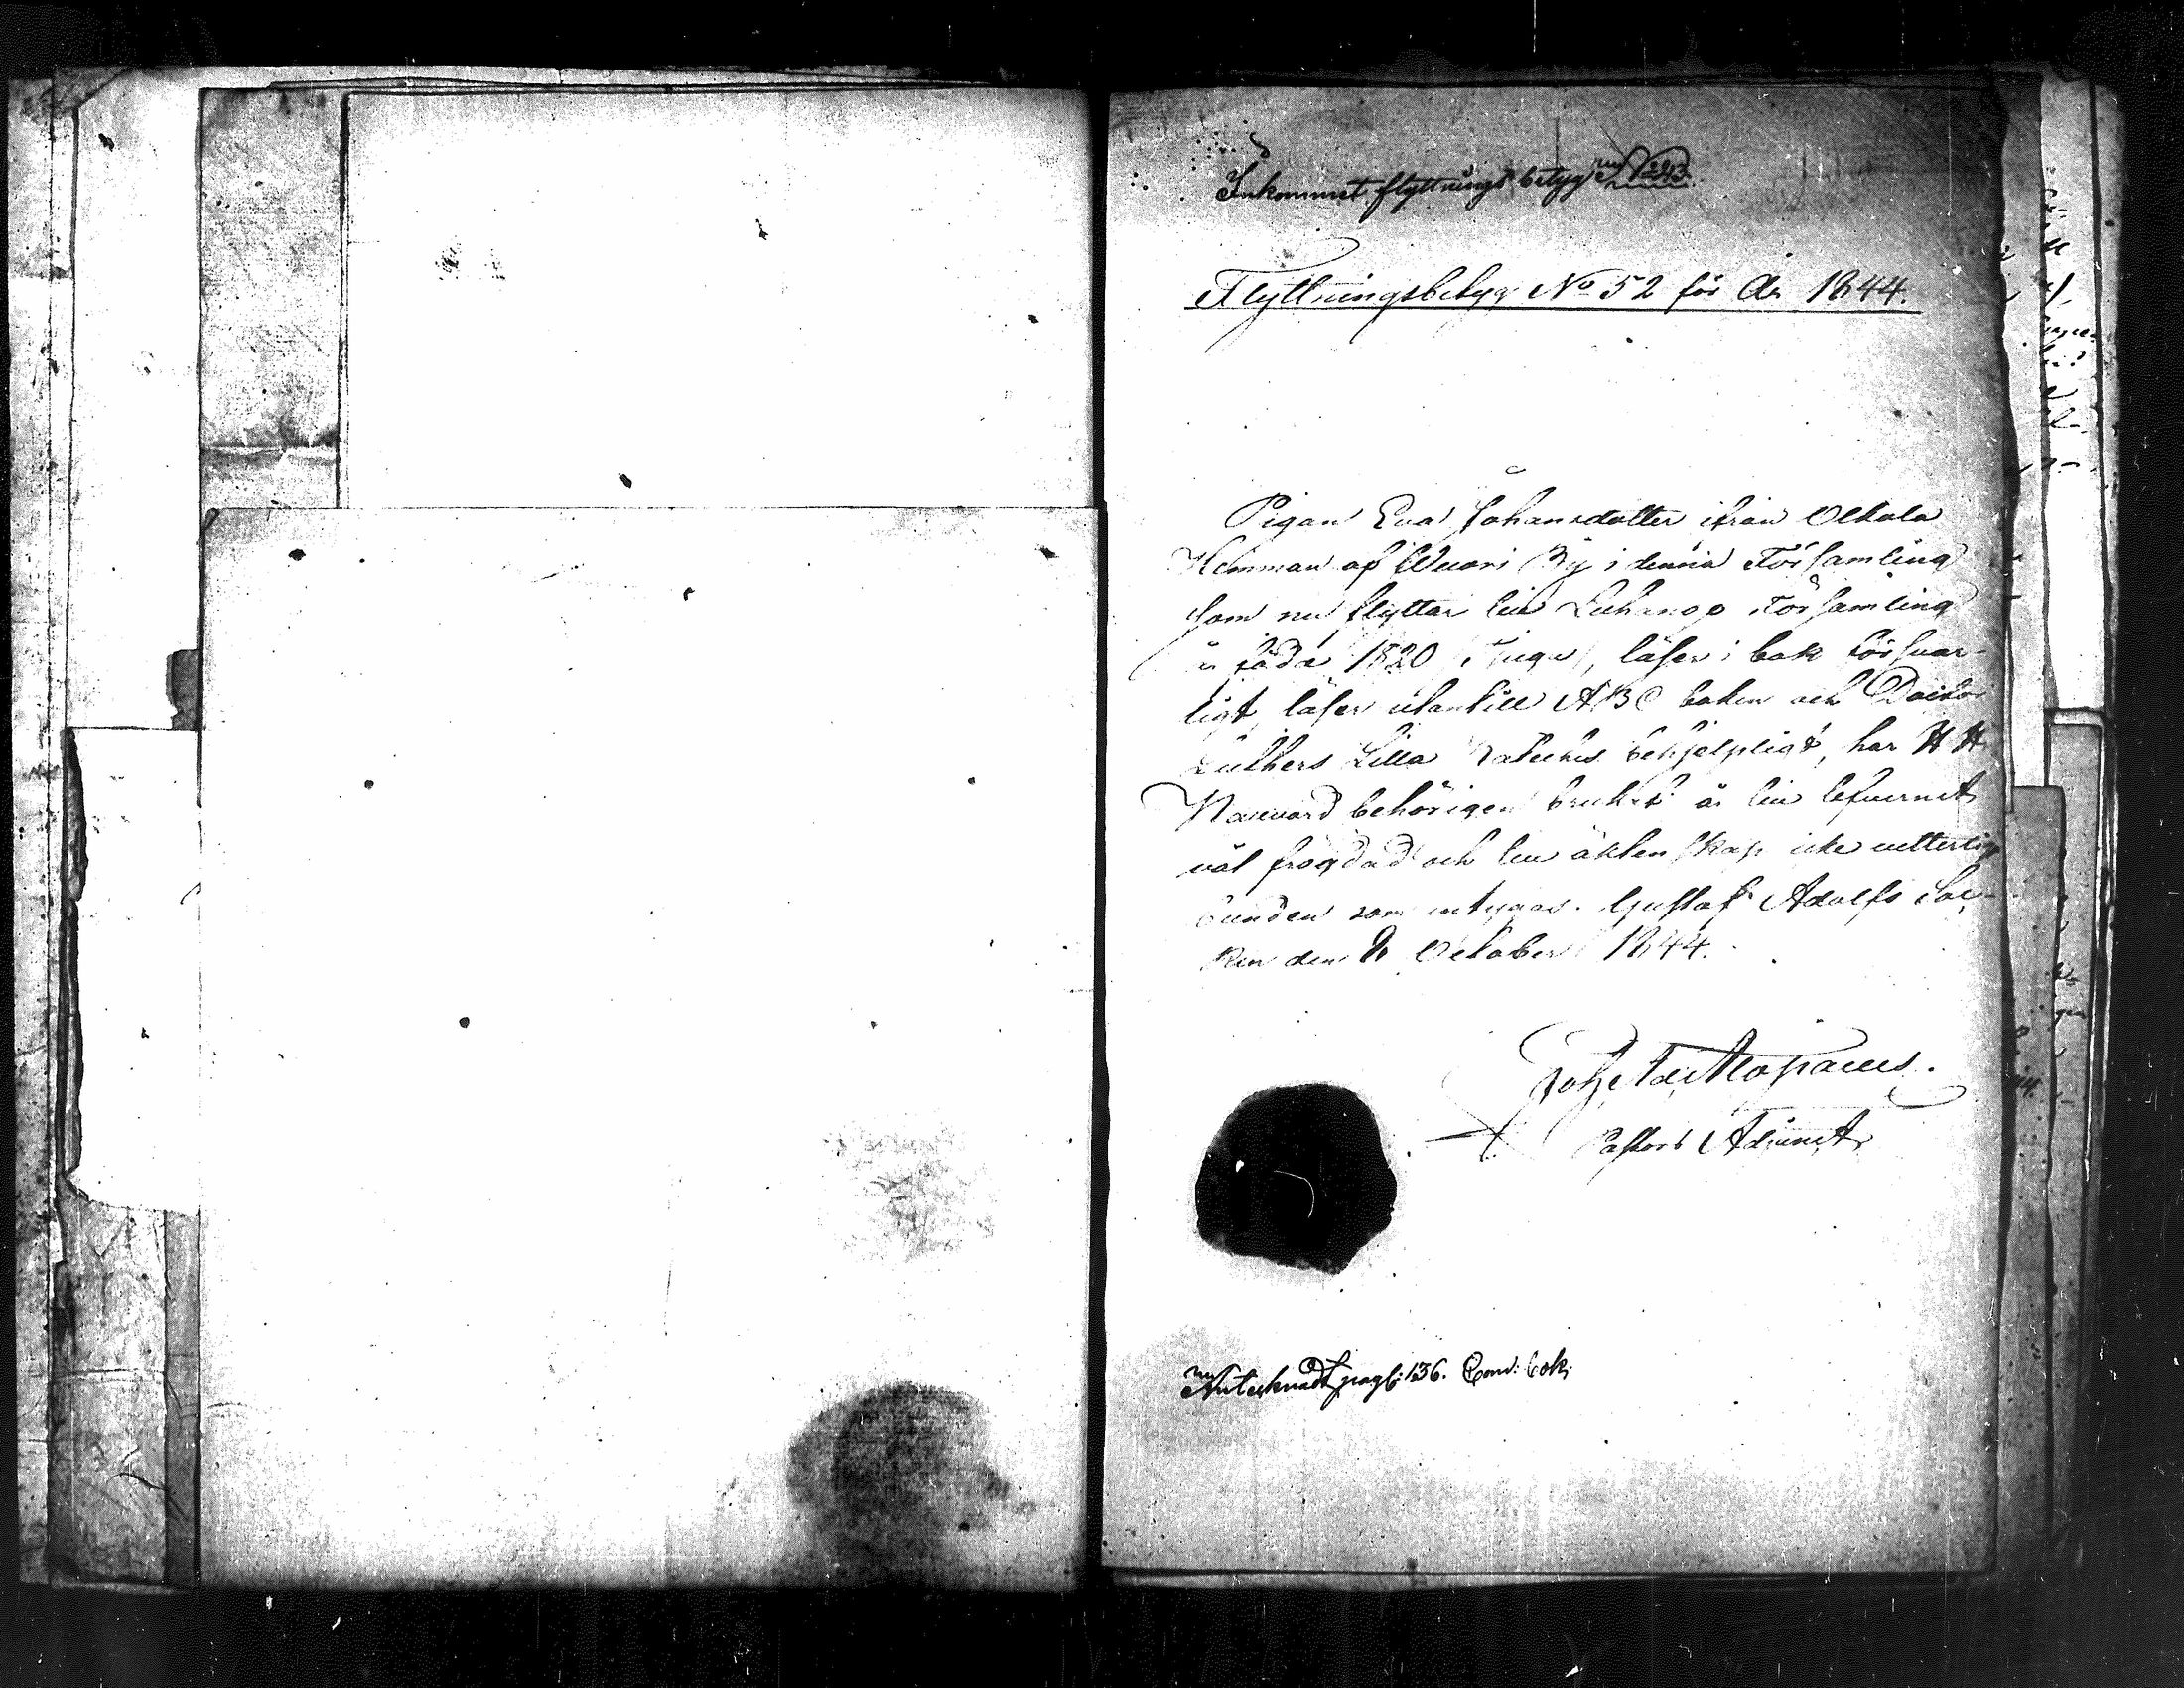 Inkommet flyttnings betyg
Flyttningsbetyg No 52 för År 1844.
Pigan Eva Johansdotter ifrån Olkola
Hemman af Wuori By i denna Församling
som nu flyttar till Luhango Församling
är född 1820 /Tjugu/, läser i bok försvar-
ligt, läser utantill ABC boken och Doctor
Luthers Lilla Kateches behjelpligt, har H H
Nattvard behörigen brukat är till lefvernet
väl frägdad och till äktenskap icke vetterlig
bunden som intygas. Gustaf Adolfs Soc-
ken den 8 October 1844.
Pastors Adjunct
Antecknadt pag: 136. Com: bok: